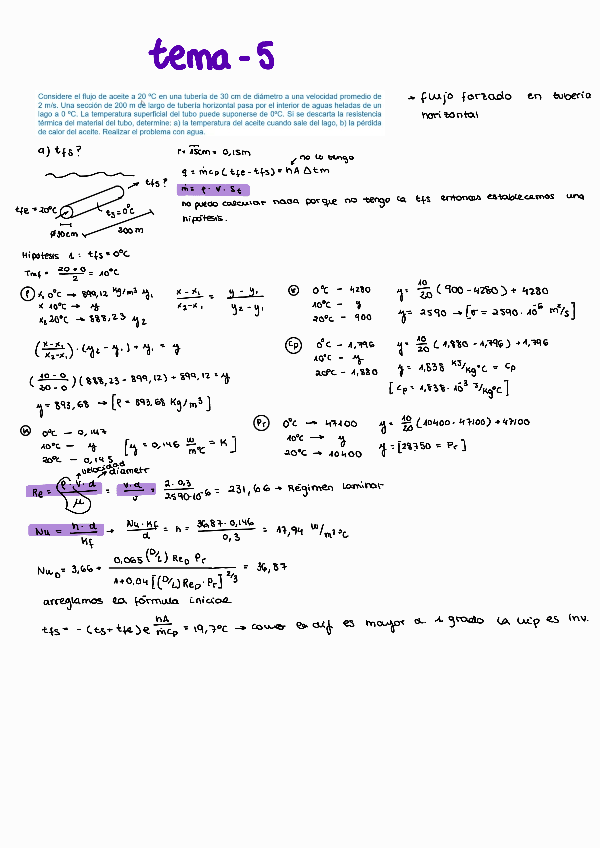 tema-5
Considere el flujo de aceite a 20 ºC en una tubería de 30 cm de diámetro a una velocidad promedio de
2 m/s. Una sección de 200 m de largo de tubería horizontal pasa por el interior de aguas heladas de un
lago a 0 ºC. La temperatura superficial del tubo puede suponerse de 0ºC. Si se descarta la resistencia
térmica del material del tubo, determine: a) la temperatura del aceite cuando sale del lago, b) la pérdida
de calor del aceite. Realizar el problema con agua.
→ flujo forzado en tubería
horizontal
a) tfs?
r= 15cm = 0,15m
no lo tengo
q = ṁcp (tfe - tfs) = hA Δtm
ṁ = ρ · V · St
no puedo calcular nada porque no tengo la tfs entonces establecemos una
hipótesis.
tfs?
tfe = 20ºC
ts=0ºC
Ø30cm
200m
Hipótesis 1: tfs = 0ºC
Tmf = (20+0)/2 = 10ºC
ρ
x₁ 0ºC → 899,12 Kg/m³ y₁
x 10ºC → y
x₂ 20ºC → 888,23 y₂
(x-x₁)/(x₂-x₁) = (y-y₁)/(y₂-y₁)
((x-x₁)/(x₂-x₁)) · (y₂-y₁) + y₁ = y
((10-0)/(20-0)) (888,23 - 899,12) + 899,12 = y
y = 893,68 → [ρ = 893,68 Kg/m³]
0ºC - 4280
10ºC - y
20ºC - 900
y = 10/20 (900-4280) + 4280
y = 2590 → [σ = 2590·10⁻⁶ m²/s]
Cp
0ºC - 1,796
10ºC - y
20ºC - 1,880
y = 10/20 (1,880-1,796) + 1,796
y = 1,838 KJ/KgºC = Cp
[Cp = 1,838·10⁻³ J/KgºC]
K
0ºC - 0,147
10ºC - y
20ºC - 0,145
[y = 0,146 W/mºC = K]
Pr
0ºC → 47100
10ºC → y
20ºC → 10400
y = 10/20 (10400-47100) + 47100
y = [28750 = Pr]
velocidad
diámetr
Re = (ρ·v·d)/μ = (v·d)/ν = (2·0,3)/(2590·10⁻⁶) = 231,66 → Régimen Laminar
Nu = (h·d)/Kf → (Nu·Kf)/d = h = (36,87·0,146)/0,3 = 17,94 W/m²ºC
Nu_D = 3,66 + (0,065 (D/L) Re_D Pr)/(1+0,04 [(D/L) Re_D · Pr]^2/3) = 36,87
arreglamos la fórmula inicial
tfs = - (ts + tfe) e hA/ṁcp = 19,7ºC → como es dif es mayor a 1 grado la hip es inv.